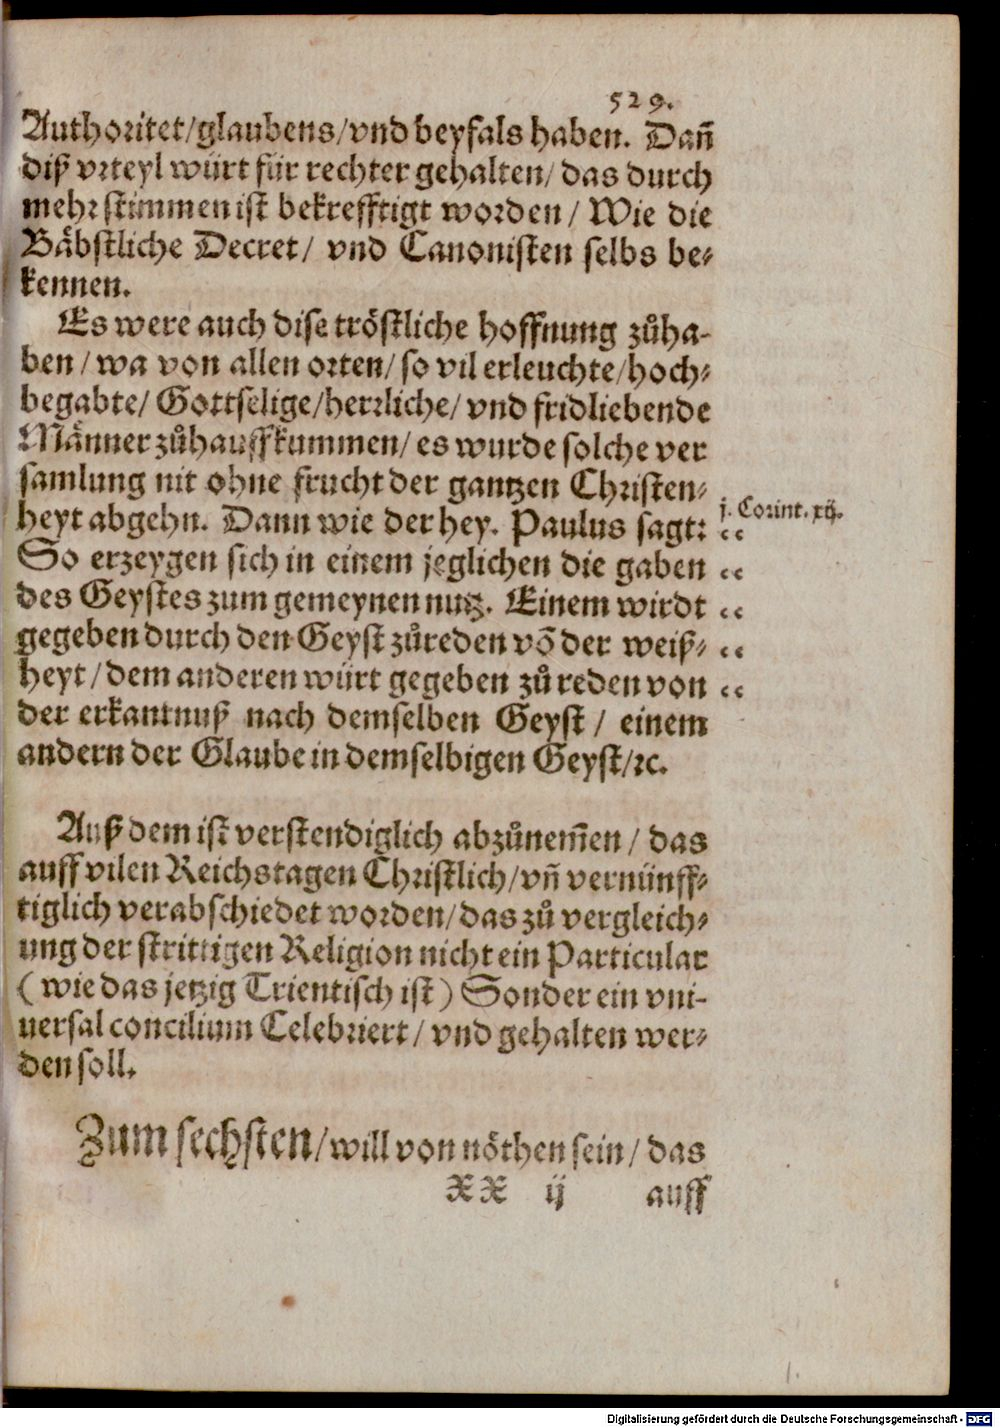 529.
Authoritet/glaubens/vnd beyfals haben. Dañ
diß vrteyl würt für rechter gehalten/ das durch
mehr stimmen ist bekrefftigt worden / Wie die
Bäbstliche Decret/ vnd Canonisten selbs be⸗
kennen.
Es were auch dise tröstliche hoffnung zůha-
ben / wa von allen orten/ so vil erleuchte/hoch⸗
begabte/ Gottselige/herrliche/ vnd fridliebende
Männer zůhauffkummen/ es wurde solche ver
samlung nit ohne frucht der gantzen Christen⸗
heyt abgehn. Dann wie der hey. Paulus sagt:
j. Corint. xij.
So erzeygen sich in einem jeglichen die gaben
des Geystes zum gemeynen nutz. Einem wirdt
gegeben durch den Geyst zůreden võ der weiß⸗
heyt / dem anderen würt gegeben zů reden von
der erkantnuß nach demselben Geyst / einem
andern der Glaube in demselbigen Geyst/ꝛc.
Auß dem ist verstendiglich abzůnem̃en / das
auff vilen Reichstagen Christlich/vñ vernünff⸗
tiglich verabschiedet worden/ das zů vergleich⸗
ung der strittigen Religion nicht ein Particular
( wie das jetzig Trientisch ist ) Sonder ein vni-
uersal concilium Celebriert / vnd gehalten wer⸗
den soll.
Zum sechsten/ will von nöthen sein / das
XX ij auff
Digitalisierung gefördert durch die Deutsche Forschungsgemeinschaft - DFG